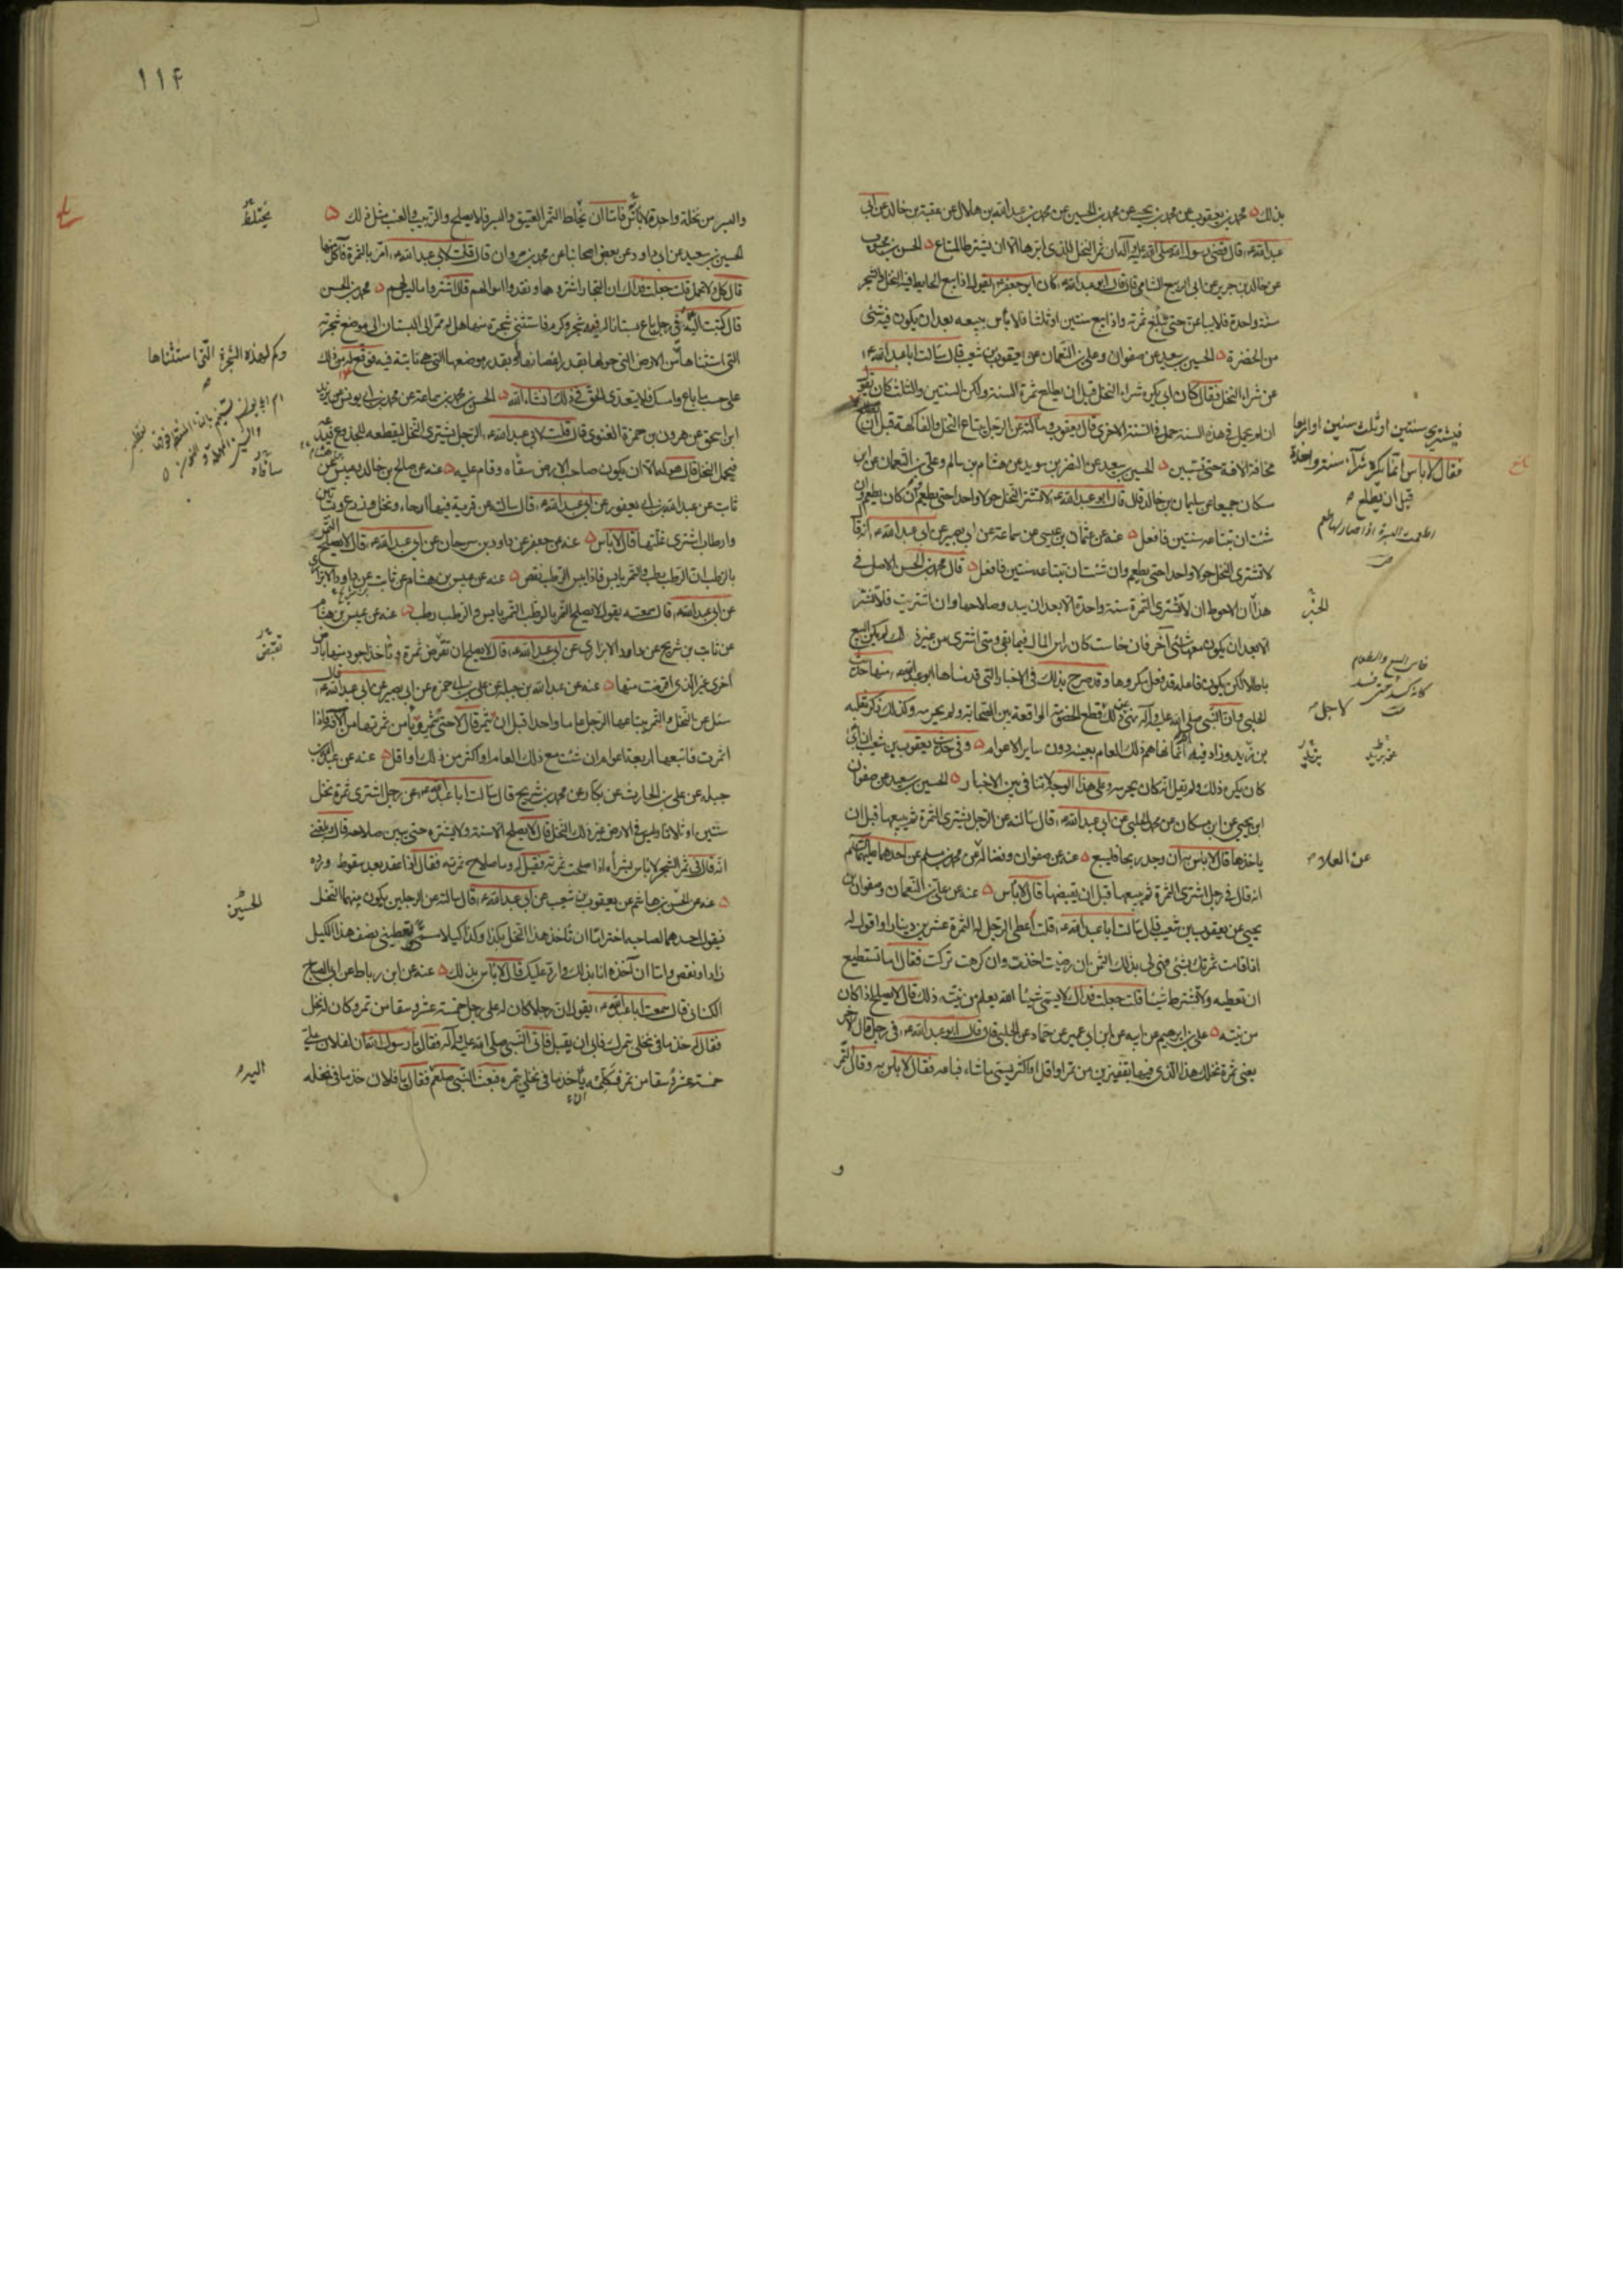 بذلك محمد بن يعقوب عن محمد بن يحيى عن محمد بن الحسين عن محمد بن عبدالله بن هلال عن عقبة بن خالد عن ابي
عبدالله ع قال قضى رسول الله صلى الله عليه وآله ان ثمر النخل للذي ابرها الا ان يشترط المبتاع الحسن بن محبوب
عن خالد بن جرير عن ابي الربيع الشامي قال قال ابو عبدالله ع كان ابو جعفر ع يقول اذا بيع الحايط فيه النخل والشجر
سنة واحدة فلا يباعن حتى تبلغ ثمرته واذا بيع سنتين او ثلثا فلا باس ببيعه بعد ان يكون فيه شئ
من الخضرة الحسين بن سعيد عن صفوان وعلي بن النعمان عن يعقوب بن شعيب قال سالت ابا عبدالله ع
عن شراء النخل فقال كان ابي يكره شراء النخل قبل ان يطلع ثمرة السنة ولكن السنتين والثلث كان يقول
ان لم يحمل في هذه السنة حمل في السنة الاخرى قال يعقوب وسالته عن الرجل يبتاع النخل والفاكهة قبل ان
فيشتري سنتين او ثلث سنين او اربعا
فقال لا باس انما يكره شراء سنة واحدة
قبل ان يطلع
مخافة الآفة حتى تستبين الحسين بن سعيد عن النضر بن سويد عن هشام بن سالم وعلي بن النعمان عن ابن
مسكان جميعا عن سليمان بن خالد قال قال ابو عبدالله ع لا تشتر النخل حولا واحدا حتى يطعم وان كان يطعم ان
شئت ان تبتاعه سنتين فافعل عنه عن عثمان بن عيسى عن سماعة عن ابي بصير عن ابي عبدالله ع انه قال
لا تشتري النخل حولا واحدا حتى يطعم وان شئت ان تبتاعه سنتين فافعل قال محمد بن الحسن الاصل في
هذا ان الاحوط ان لا تشتري الثمرة سنة واحدة الا بعد ان يبدو صلاحها وان اشتريت فلا تشتر
الا بعد ان يكون معها شئ آخر فان خاست كان راس المال فيما بقي ومتى اشترى من غير ذلك لم يكن البيع
باطلا لكن يكون فاعله قد فعل مكروها وقد صرح بذلك في الاخبار التي قدمناها ابو عبدالله ع منها حديث
الحلبي وان النبي صلى الله عليه وآله نهى عن ذلك لقطع الخصومة الواقعة بين الصحابة ولم يحرمه وكذلك ذكر ثعلبة
بن زيد وزاد فيه انه انما نهاهم ذلك العام بعينه دون ساير الاعوام وفي حديث يعقوب بن شعيب ان ابي
كان يكره ذلك ولم يقل انه كان يحرمه وعلى هذا الوجه لا تنافي بين الاخبار الحسين بن سعيد عن صفوان
ابن يحيى عن ابن مسكان عن محمد الحلبي عن ابي عبدالله ع قال سالته عن الرجل يشتري الثمرة ثم يبيعها قبل ان
ياخذها قال لا باس به ان وجد ربحا فليبع عنه عن صفوان وفضالة عن محمد بن مسلم عن احدهما عليهما السلم
عن العلاء
انه قال في رجل اشترى الثمرة ثم يبيعها قبل ان يقبضها قال لا باس عنه عن علي بن النعمان وصفوان بن
يحيى عن يعقوب بن شعيب قال سالت ابا عبدالله ع قلت اعطي الرجل له الثمرة عشرين دينارا واقول له
اذا قامت ثمرتك بشئ فهي لي بذلك الثمن ان رضيت اخذت وان كرهت تركت فقال اما تستطيع
ان تعطيه ولا تشترط شيئا قلت جعلت فداك لا يسمي شيئا الله يعلم من نيته ذلك قال لا يصلح اذا كان
من نيته علي بن ابرهيم عن ابيه عن ابن ابي عمير عن حماد عن الحلبي قال قال ابو عبدالله ع في رجل قال لآخر
بعني ثمرة نخلك هذا الذي فيها بقفيزين من تمر او اقل او اكثر يسمي ما شاء فباعه فقال لا باس به وقال التمر
و
١١۴
والبسر من نخلة واحدة لا باس فاما ان يخلط التمر العتيق والبسر فلا يصلح والزبيب والعنب مثل ذلك
الحسين بن سعيد عن ابي داود عن بعض اصحابنا عن محمد بن مروان قال قلت لابي عبدالله ع امر بالثمرة فآكل منها
قال كل ولا تحمل قلت جعلت فداك ان التجار اشتروها ونقدوا اموالهم قال اشتروا ما ليس لهم محمد بن الحسن
قال كتبت اليه في رجل باع بستانا له فيه شجر وكرم فاستثنى شجرة منها هل له ممر الى البستان الى موضع شجرته
وكم لهذه الشجرة التي استثناها
التي استثناها من الارض التي حولها بقدر اغصانها او بقدر موضعها التي هي نابتة فيه فوقع له من ذلك
على حسب ما باع وامسك فلا يتعدى الحق في ذلك انشاء الله الحسن بن محمد بن سماعة عن محمد بن ابي يونس عن يزيد
ابن اسحق عن هرون بن حمزة الغنوي قال قلت لابي عبدالله ع الرجل يشتري النخل ليقطعه للجذوع فيدعه
فيحمل النخل قال هو له الا ان يكون صاحب الارض سقاه وقام عليه عنه عن صالح بن خالد وعبيس بن هشام عن
ثابت عن عبدالله بن ابي يعفور عن ابي عبدالله ع قال سالته عن قرية فيها ارحاء ونخل وزرع وبساتين
وارطاب اشتري غلتها قال لا باس عنه عن جعفر عن داود بن سرحان عن ابي عبدالله ع قال لا يصلح التمر
بالرطب ان الرطب رطب والتمر يابس فاذا يبس الرطب نقص عنه عن عبيس بن هشام عن ثابت عن داود الابزاري
عن ابي عبدالله ع قال سمعته يقول لا يصلح التمر بالرطب التمر يابس والرطب رطب عنه عن عبيس بن هشام
عن ثابت بن شريح عن داود الابزاري عن ابي عبدالله ع قال لا يصلح ان تقرض ثمرة وتاخذ اجود منها بارض
اخرى غير الذي اقرضت منها عنه عن عبدالله بن جبلة عن علي بن ابي حمزة عن ابي بصير عن ابي عبدالله ع قال
سئل عن النخل والتمر يبتاعها الرجل عاما واحدا قبل ان يثمر قال لا حتى تثمر وتامن ثمرتها من الآفة فاذا
اثمرت فابتعها اربعة اعوام ان شئت مع ذلك العام او اكثر من ذلك او اقل عنه عن عبدالله بن
جبلة عن علي بن الحارث عن بكار عن محمد بن شريح قال سالت ابا عبدالله ع عن رجل اشترى ثمرة نخل
سنتين او ثلاثا وليس في الارض غير ذلك النخل قال لا يصلح الا سنة ولا يشتره حتى يبين صلاحه قال وبلغني
انه قال في ثمر الشجر لا باس بشرائه اذا صلحت ثمرته فقيل له وما صلاح ثمرته فقال اذا عقد بعد سقوط ورده
عنه عن الحسن بن هاشم عن يعقوب بن شعيب عن ابي عبدالله ع قال سالته عن الرجلين يكون بينهما النخل
الحسين
فيقول احدهما لصاحبه اختر اما ان تاخذ هذا النخل بكذا وكذا كيلا مسمى وتعطيني نصف هذا الكيل
زاد او نقص واما ان آخذه انا بذلك وارد عليك قال لا باس بذلك عنه عن ابن رباط عن ابي الصباح
الكناني قال سمعت ابا عبدالله ع يقول ان رجلا كان له على رجل خمسة عشر وسقا من تمر وكان له نخل
فقال له خذ ما في نخلي بتمرك فابى ان يقبل فاتى النبي صلى الله عليه وآله فقال يا رسول الله ان لفلان علي
خمسة عشر وسقا من تمر فكلمه ياخذ ما في نخلي بتمره فبعث النبي صلعم فقال يا فلان خذ ما في نخله